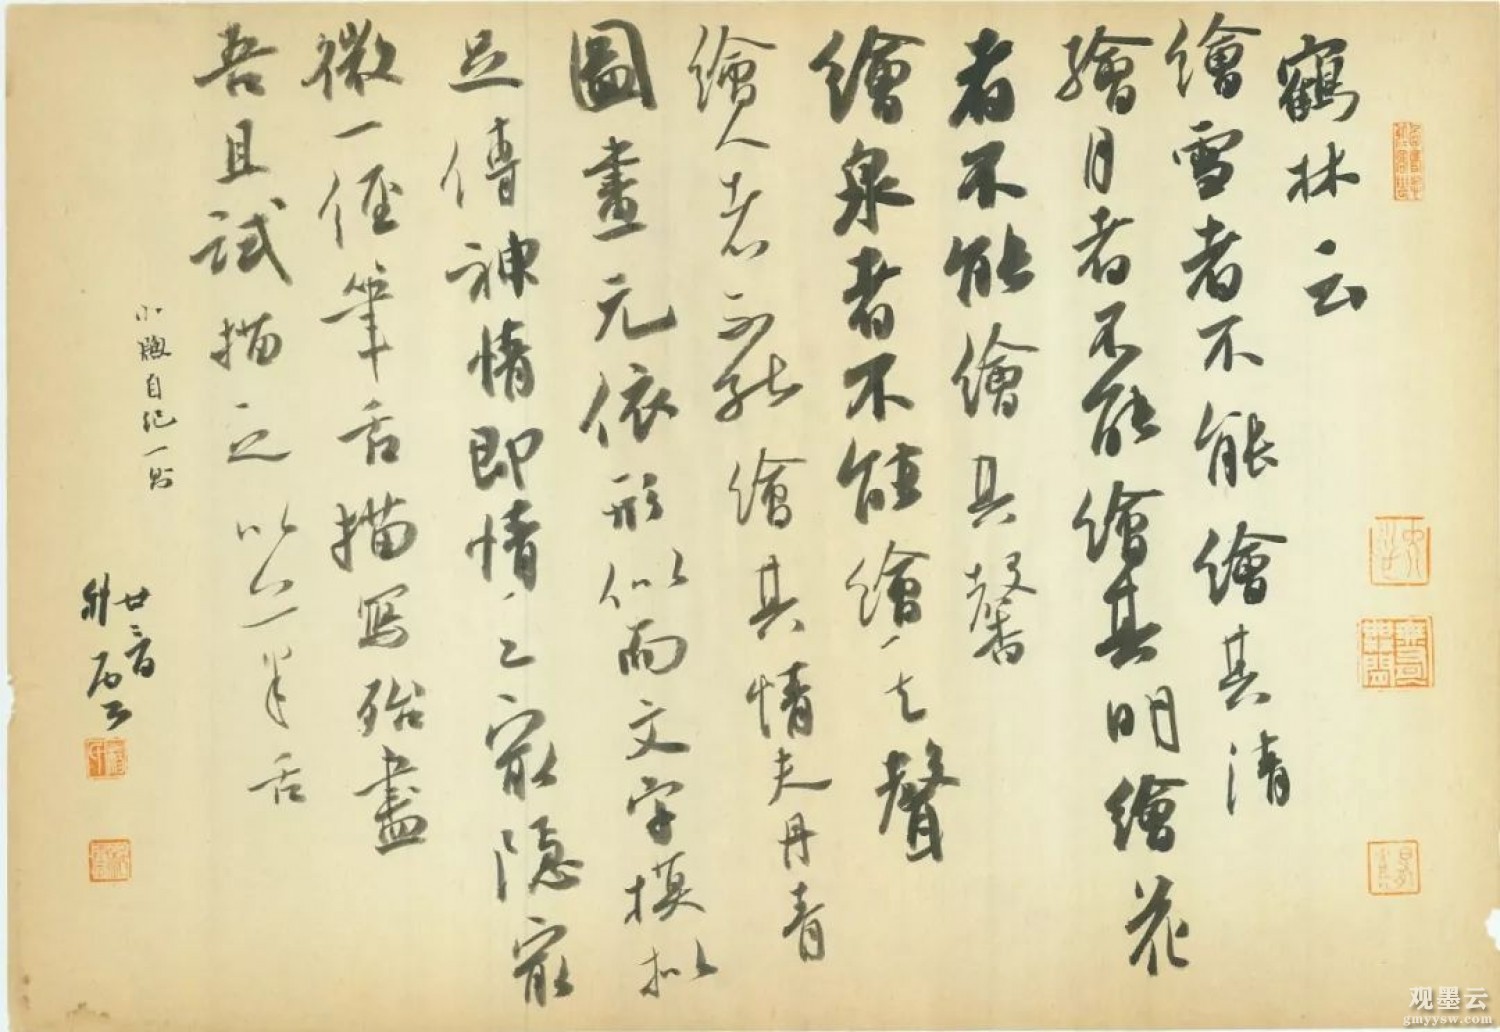 鶴林云
繪雪者不能繪其清
繪月者不能繪其明繪花
者不能繪其馨
繪泉者不能繪其聲
繪人者不能繪其情夫丹青
圖畫元依形似而文字摸拟
足傳神情即情之最隱最
微一經筆舌描寫殆盡
吾且試描之以筆舌
小牕自紀一則
观墨云
gmyysw.com